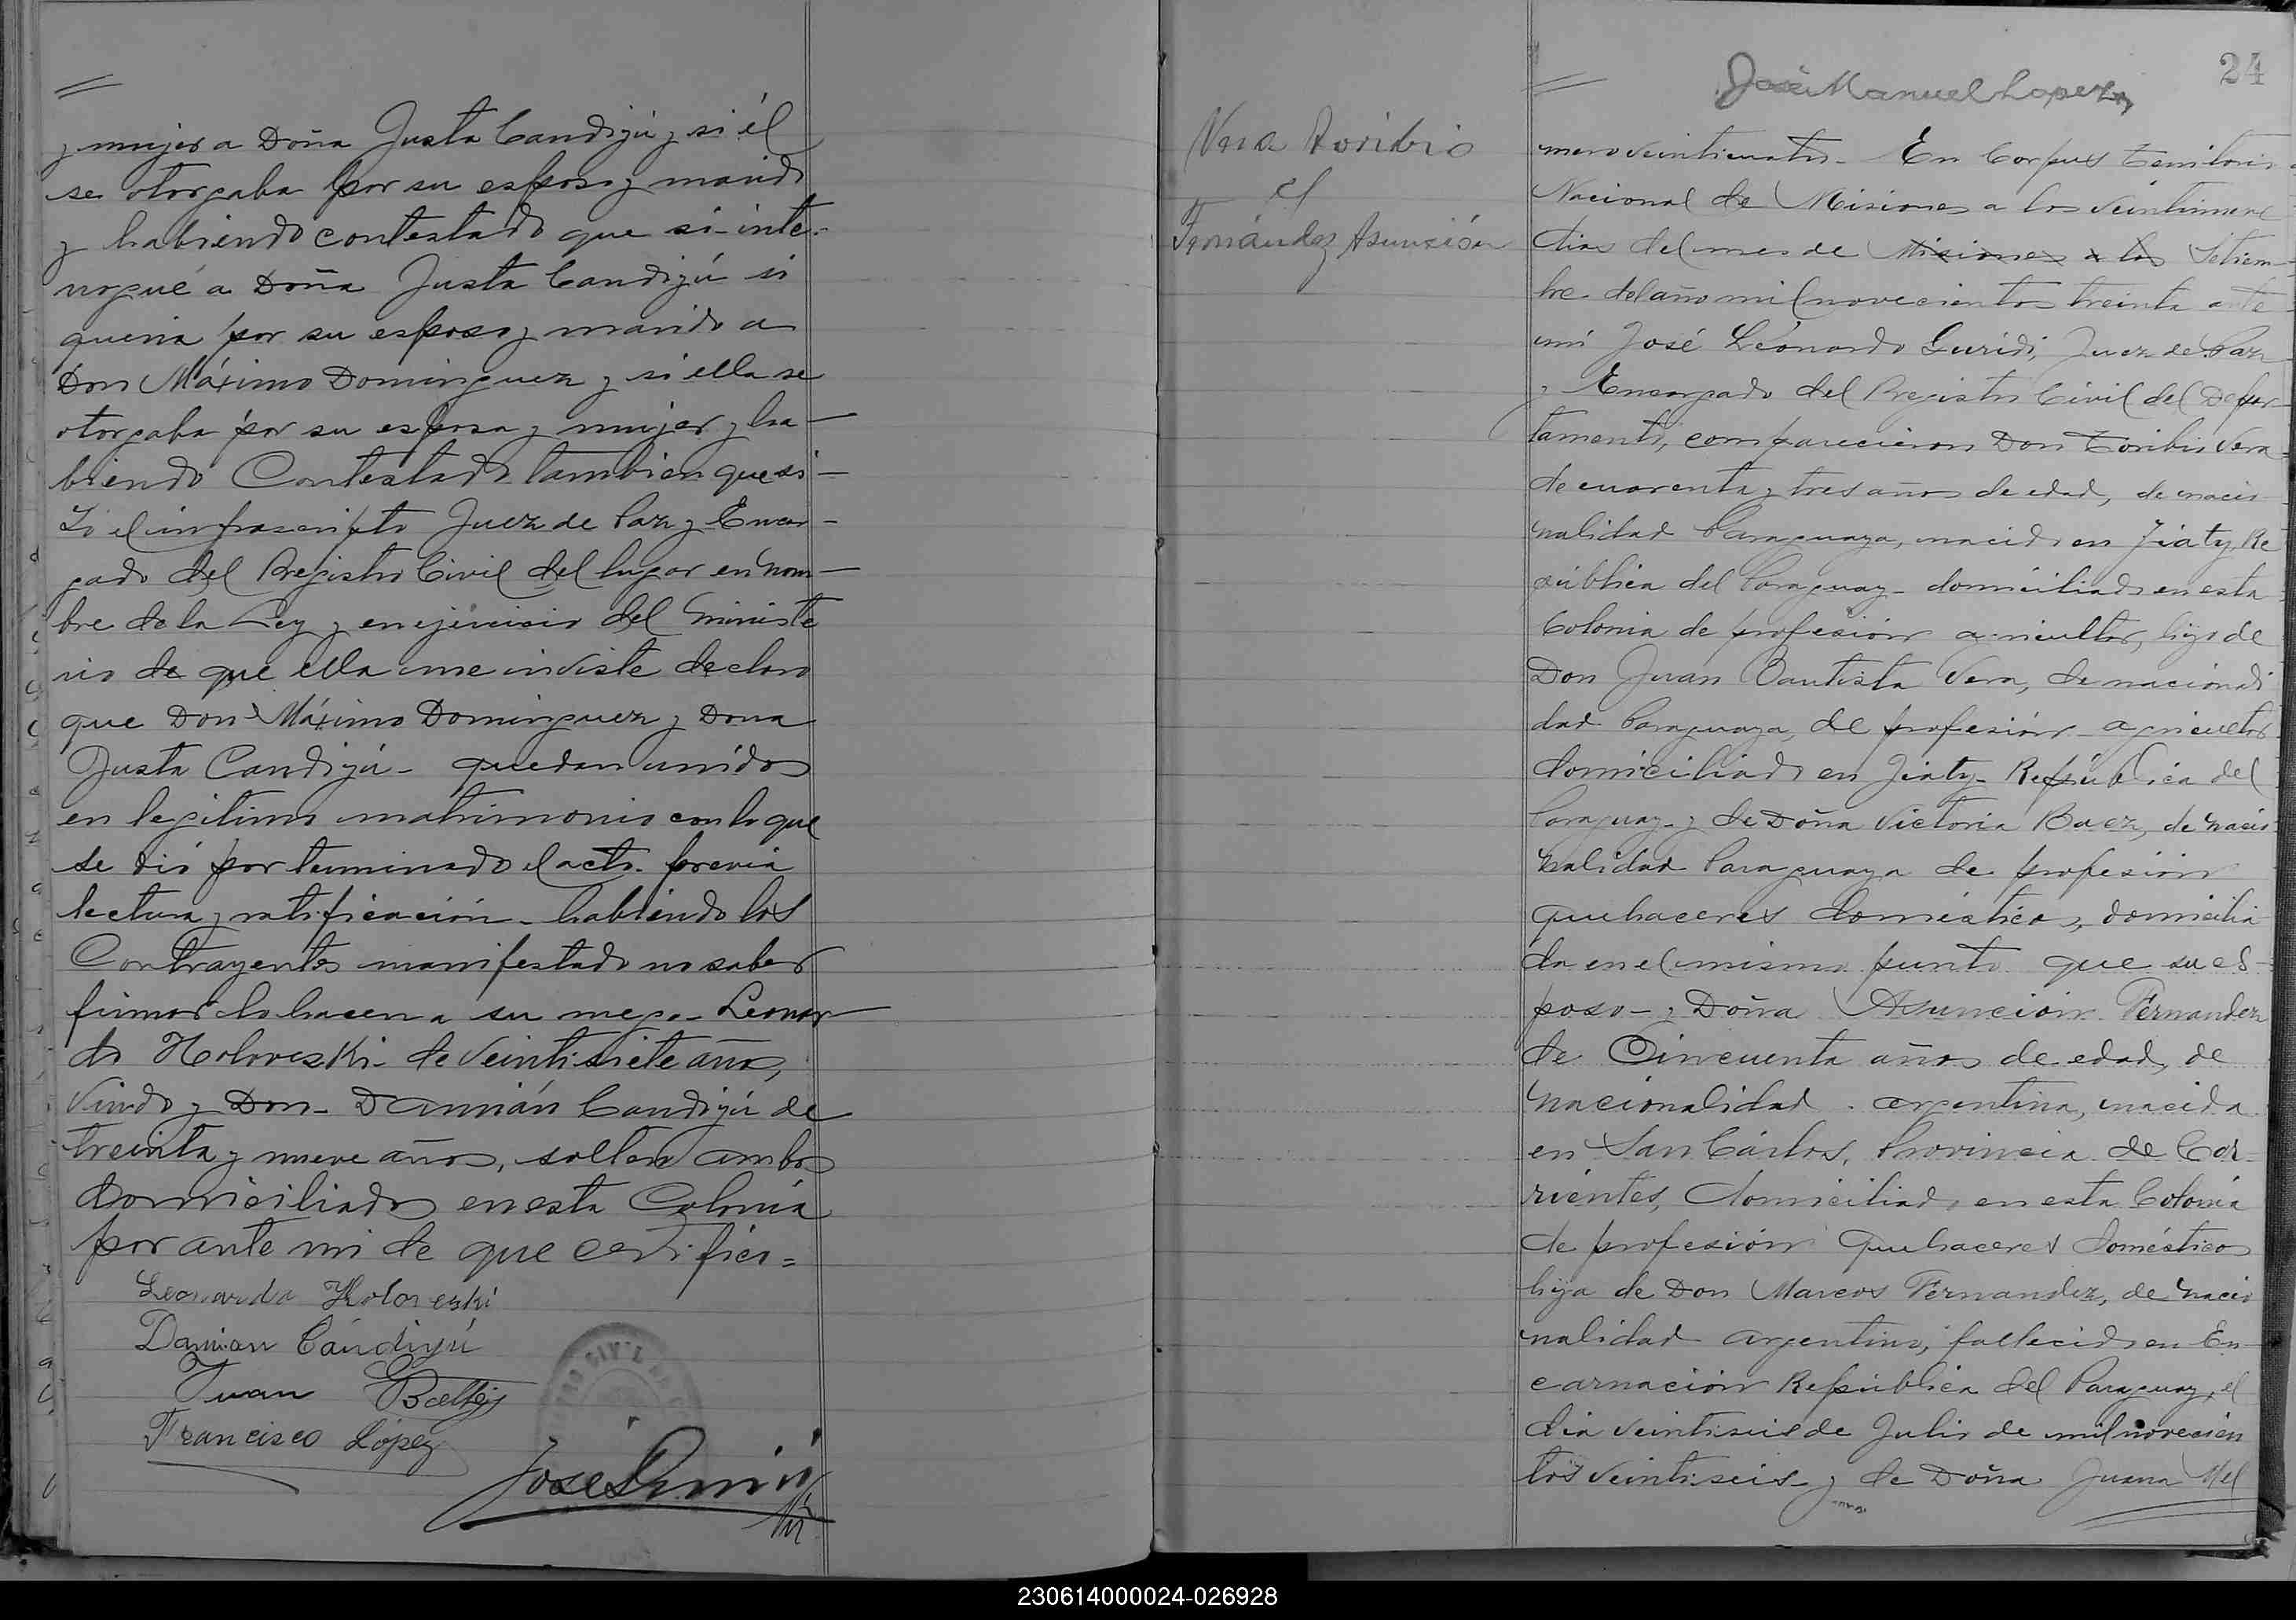 y mujer a Doña Justa Candiyú y si él
se otorgaba por su esposo y marido
y habiendo contestado que si - inte-
rrogué a Doña Justa Candiyú si
queria por su esposo y marido a
Don Máximo Dominguez y si ella se
otorgaba por su esposa y mujer y ha-
biendo Contestado tambien que si -
Yo el infrascripto Juez de Paz y Encar-
gado del Registro Civil del lugar en nom-
bre de la Ley y en ejercicio del ministe
rio de que ella me inviste declaro
que Don Máximo Dominguez y Dona
Justa Candiyú - quedan unidos
en legitimo matrimonio con lo que
se dió por terminado el acto. previa
lectura y ratificación - habiendo los
Contrayentes manifestado no saber
firmar lo hacen a su ruego - Leonar-
do Holoveski - de veintisiete años,
viudo y Don - Damián Candiyú de
treinta y nueve años, soltero ambos
domiciliados en esta Colonia
por ante mi de que certifico =
Leonardo Holoveski
Damian Cándiyú
Juan
Francisco López
José
24
José Manuel Lopez
Vera Toribio
c/
Fernández Asunción
mero veinticuatro - En Corpus Territorio
Nacional de Misiones a los veintinueve
dias del mes de Misiones a los Setiem-
bre del año mil novecientos treinta ante
mi José Leonardo Guridi, Juez de Paz
y Encargado del Registro Civil del Depar-
tamento, comparecieron Don Toribio Vera
de cuarenta y tres años de edad, de nacio
nalidad Paraguaya, nacido en Jiaty Re
pública del Paraguay - domiciliado en esta
Colonia de profesión agricultor, hijo de
Don Juan Bautista Vera, de nacionali
dad Paraguaya, de profesión - agricultor
domiciliado en Jiaty - República del
Paraguay - y de Doña Victoria Baez, de nacio
nalidad Paraguaya de profesión
quehaceres domésticos, domicilia
da en el mismo punto que su es-
poso - y Doña Asunción Fernandez
de Cincuenta años de edad, de
nacionalidad - argentina, nacida
en San Cárlos, Provincia de Cor-
rientes, domiciliada en esta Colonia
de profesión quehaceres domésticos
hija de Don Marcos Fernandez, de nacio
nalidad argentino, fallecido en En-
carnación República del Paraguay, el
dia veintiseis de Julio de mil novecien
tos veintiseis - y de Doña Juana Mel
230614000024-026928